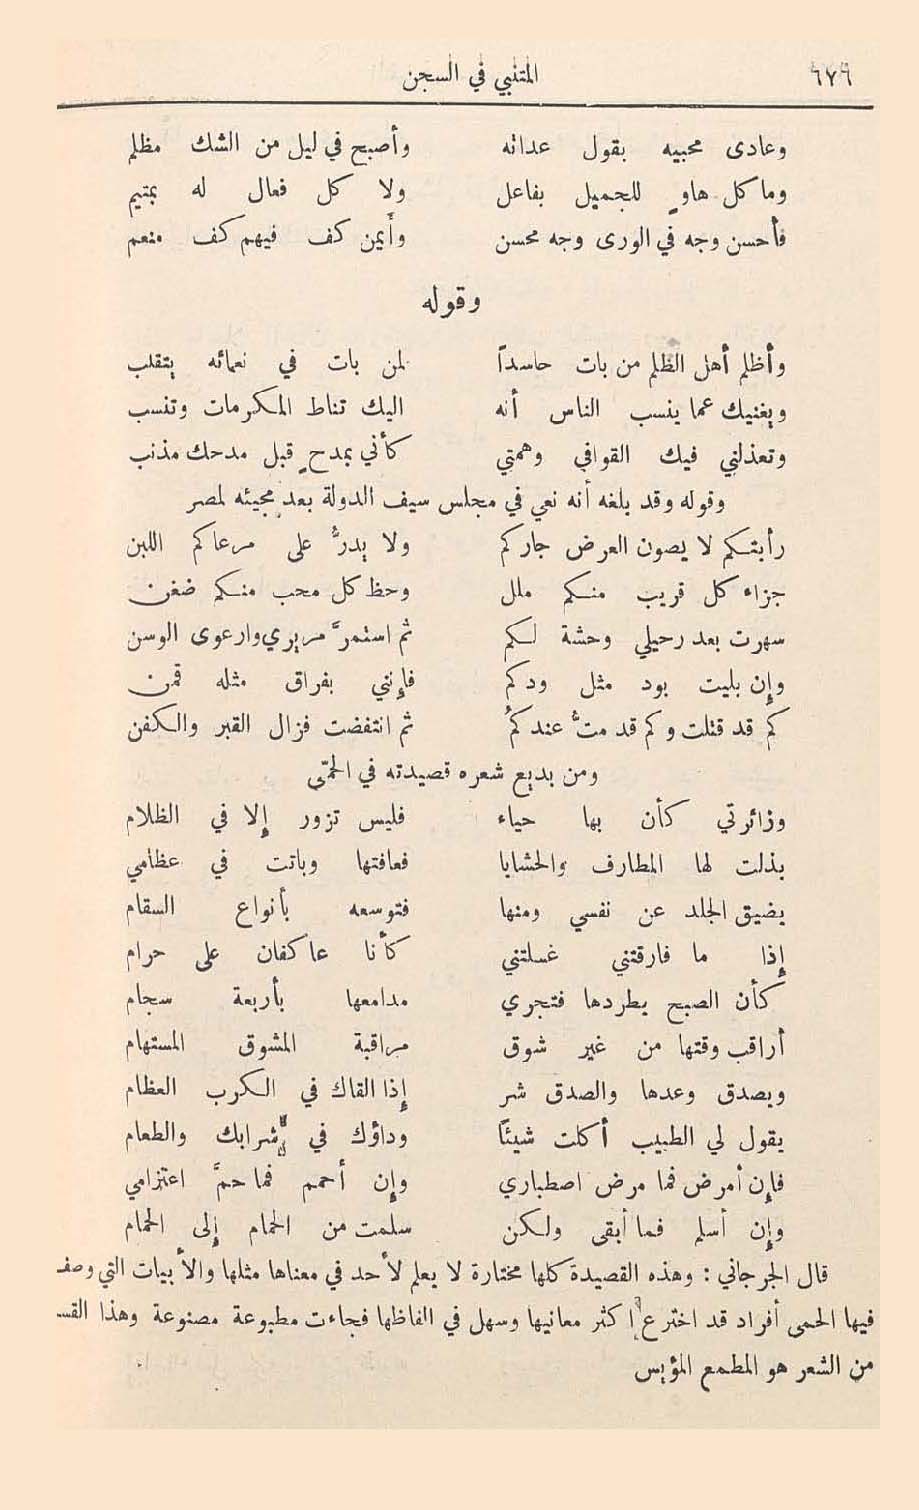 ٦٧٦ المتنبي في السجن
وعادى محبيه بقول عداته وأصبح في ليل من الشك مظلم
وما كل هاوٍ للجميل بفاعل ولا كل فعال له بمتيم
فأحسن وجه في الورى وجه محسن وأيمن كف فيهم كف منعم
وقوله
وأظلم أهل الظلم من بات حاسداً لمن بات في نعمائه يتقلب
ويغنيك عما ينسب الناس أنه اليك تناط المكرمات وتنسب
وتعذلني فيك القوافي وهمتي كأني بمدحٍ قبل مدحك مذنب
وقوله وقد بلغه أنه نعي في مجلس سيف الدولة بعد مجيئه لمصر
رأيتكم لا يصون العرض جاركم ولا يدرُّ على مرعاكم اللبن
جزاء كل قريب منكم ملل وحظ كل محب منكم ضغن
سهرت بعد رحيلي وحشة لكم ثم استمرَّ مريري وارعوى الوسن
وإن بليت بود مثل ودكم فإنني بفراق مثله قمن
كم قد قتلت وكم قد متُّ عندكمُ ثم انتفضت فزال القبر والكفن
ومن بديع شعره قصيدته في الحمّى
وزائرتي كأن بها حياء فليس تزور إلا في الظلام
بذلت لها المطارف والحشايا فعافتها وباتت في عظامي
يضيق الجلد عن نفسي ومنها فتوسعه بأنواع السقام
إذا ما فارقتني غسلتني كأنا عاكفان على حرام
كأن الصبح يطردها فتجري مدامعها بأربعة سجام
أراقب وقتها من غير شوق مراقبة المشوق المستهام
ويصدق وعدها والصدق شر إذا القاك في الكرب العظام
يقول لي الطبيب أكلت شيئاً وداؤك في شرابك والطعام
فإن أمرض فما مرض اصطباري وإن أحمم فما حمَّ اعتزامي
وإن أسلم فما أبقى ولكن سلمت من الحمام إلى الحمام
قال الجرجاني : وهذه القصيدة كلها مختارة لا يعلم لأحد في معناها مثلها والأبيات التي وصف
فيها الحمى أفراد قد اخترع أكثر معانيها وسهل في الفاظها فجاءت مطبوعة مصنوعة وهذا القس
من الشعر هو المطمع المؤيس